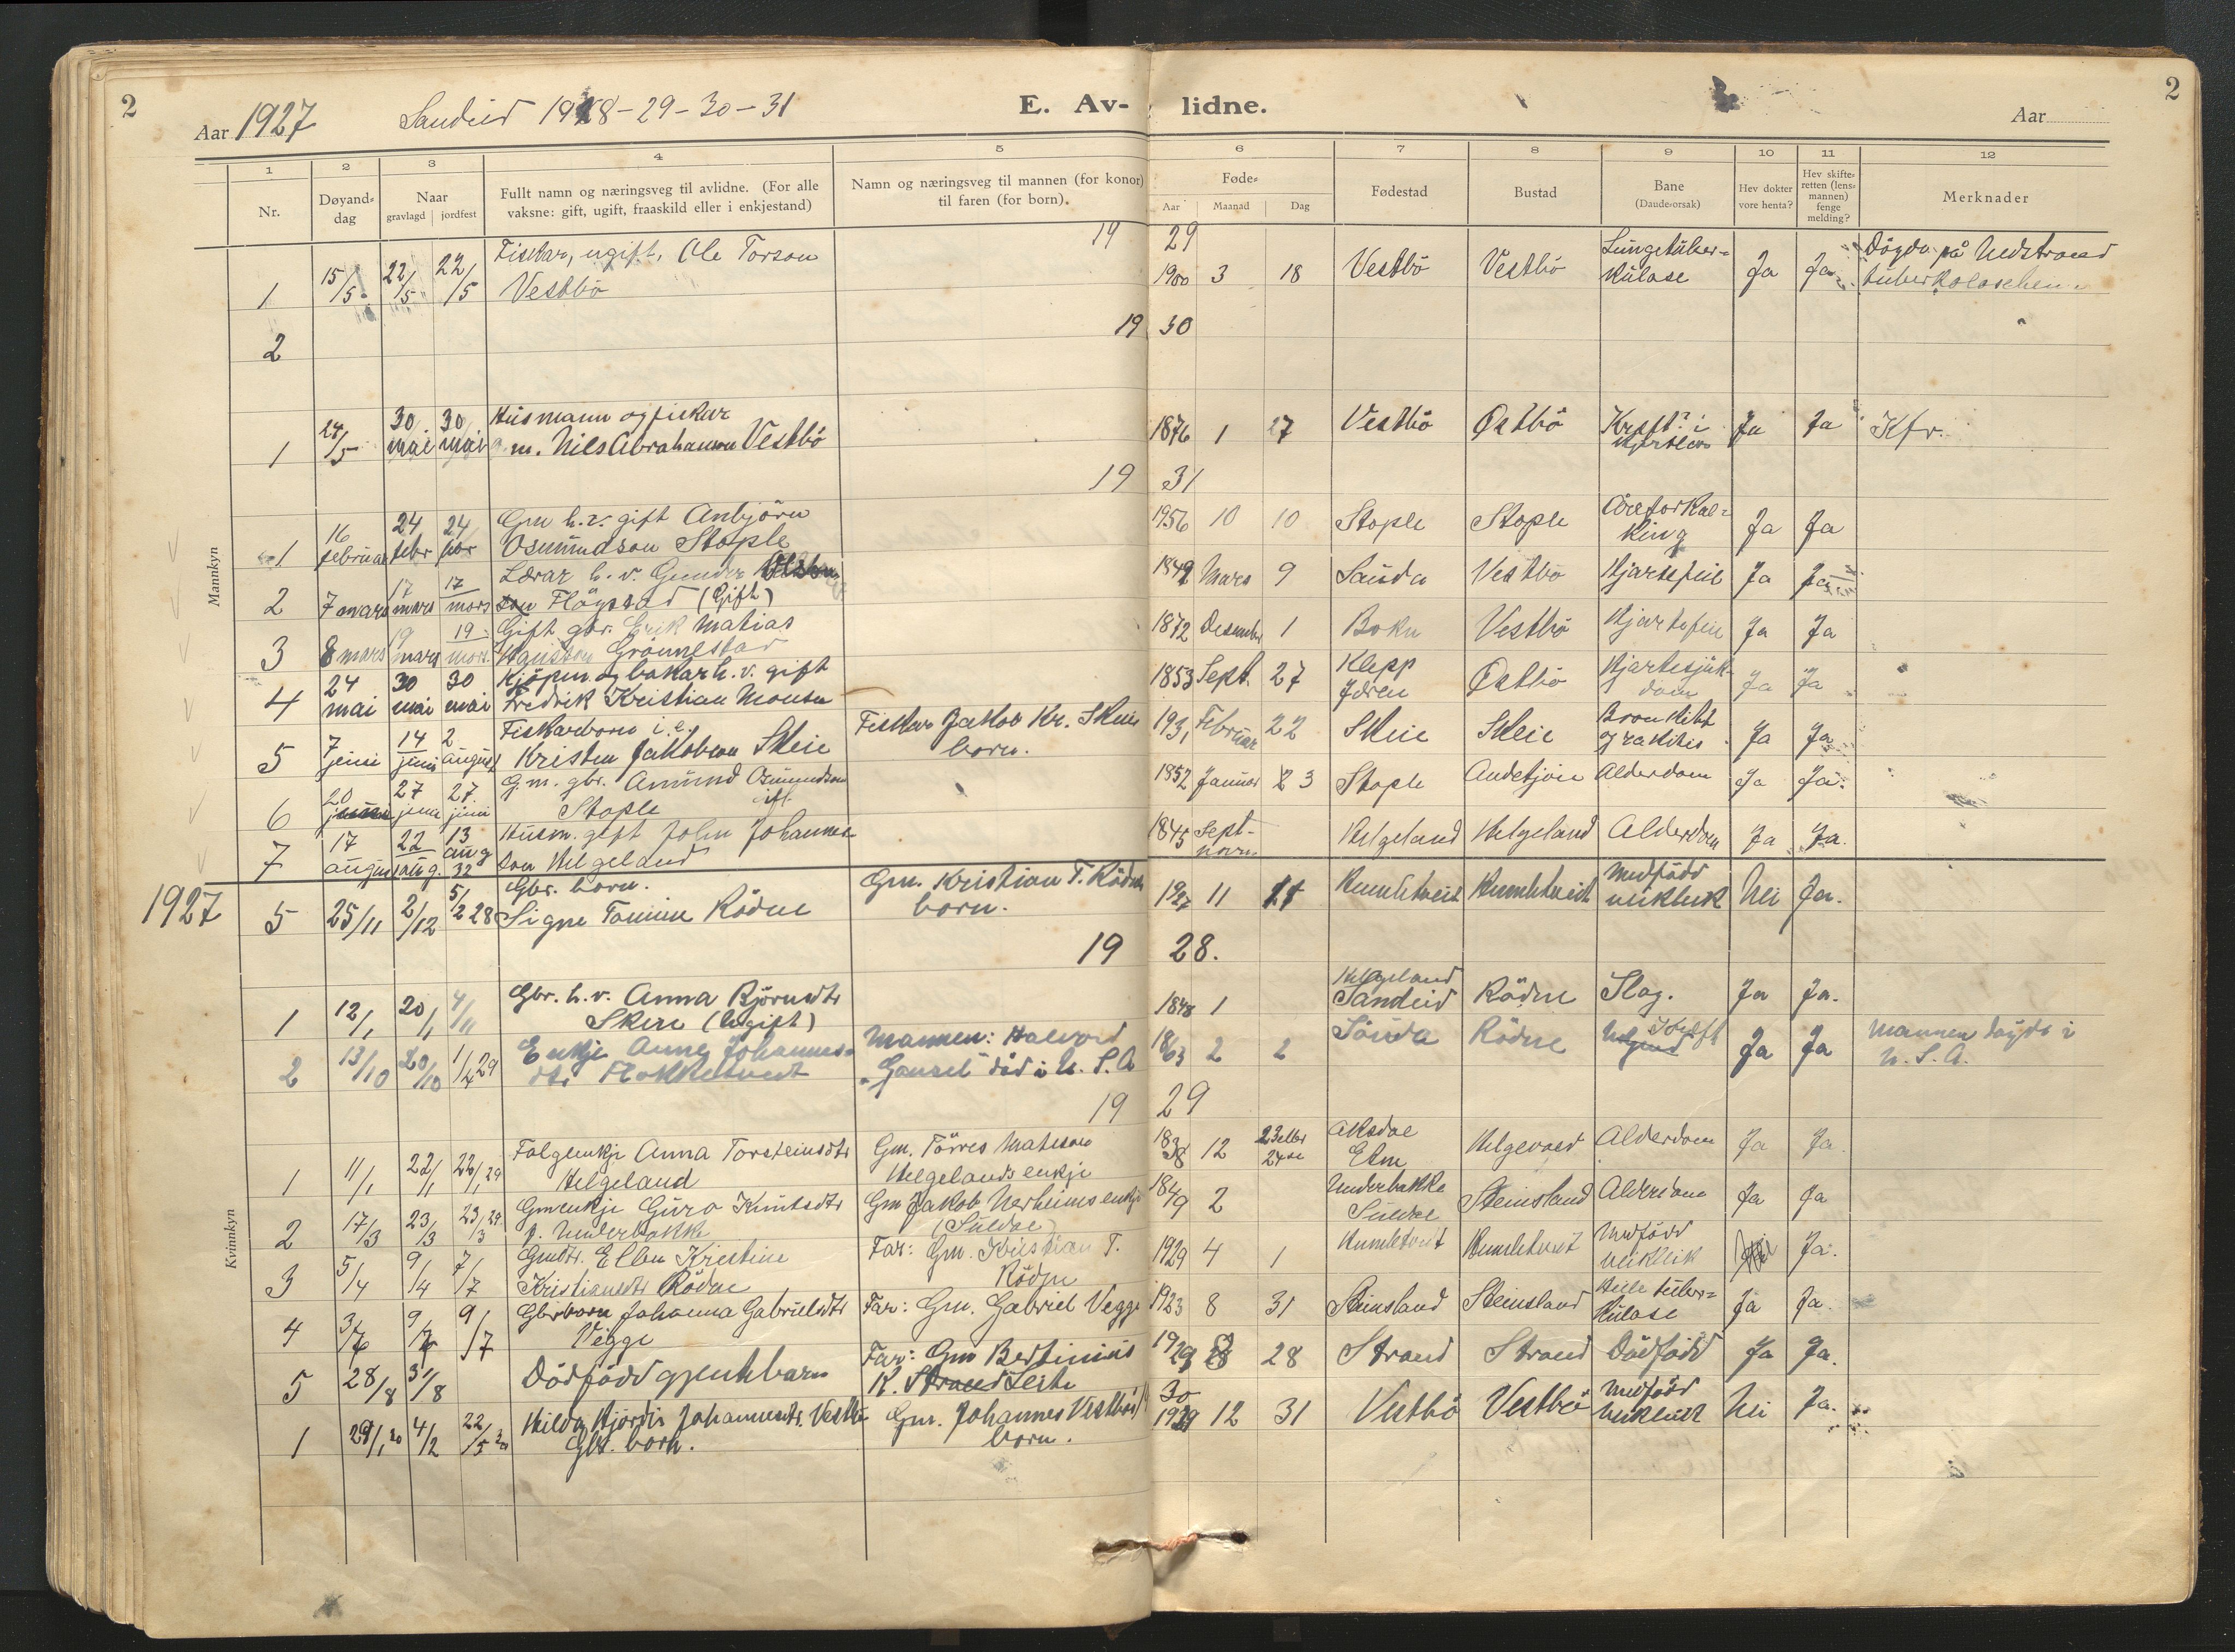 2
Aar 1927 Sandeid 1928-29-30-31 E. Av- lidne. Aar 2
1 2 3 4 5 6 7 8 9 10 11 12
Nr. Døyand-dag Naar gravlagd jordfest Fullt namn og næringsveg til avlidne. (For alle vaksne: gift, ugift, fraaskild eller i enkjestand) Namn og næringsveg til mannen (for konor) til faren (for born). Føde- Aar Maanad Dag Fødestad Bustad Bane (Daude-orsak) Hev dokter vore henta? Hev skifte-retten (lens-mannen) fenge melding? Merknader
Mannkyn
19 29
1 15/5 22/5 22/5 Fiskar, ugift, Ole Torson Vestbö 1900 3 18 Vestbö Vestbö Lungetüber-külose Ja Ja Döyde på Nedstrand
19 30
2
1 24/5 30 mai 30 mai Husmann og fiskar g.m. Nils Abrahamson Vestbö 1876 1 27 Vestbö Östbö Kreft i Ja Ja Kfr.
19 31
1 16 februar 24 febr 24 febr Gm h.v. gift Anbjörn Osmundson Stople 10 10 Stople Stople Ja Ja
2 7 mars 17 mars 17 mars Lærar h.v. Gunder Flögstad (Gift) 1849 Mars 9 Sauda Vestbö Hjartefeil Ja Ja
3 8 mars 19 mars 19 mars Gift gbr. Erik Matias Grönnestad 1872 Desember 1 Bokn Vestbö Hjartefeil Ja Ja
4 24 mai 30 mai 30 mai Kjöpm. og bakar h.v. gift Fredrik Kristian Monsen 1853 Sept. 27 Klepp Jæren Östbö Hjartesjuk-dom Ja Ja
5 7 juni 14 juni 2 august Fiskarborn i.e. Kristen Jakobson Skeie Fiskar Jakob Kr. Skeie born. 1931 Februar 22 Skeie Skeie Bronkitt og rakitis Ja Ja
6 20 juni 27 juni 27 juni G.m. gbr. Amund Osmundson Stople gift 1852 Januar 23 Stople Alderdom Ja Ja.
7 17 august 22 aug. 13 aug 32 Husm. gift John Johannes-son Helgeland 1845 Sept-novm. Helgeland Helgeland Alderdom Ja Ja.
Kvinnkyn
1927 5 25/11 2/12 5/2 28 Gbr. born. Signe Tomine Rödne Gm. Kristian T. Rödne born. 1927 11 11 Humletveit Humletveit Medfödd veikleik Nei Ja.
19 28.
1 12/1 20/1 4/11 Gbr. h.v. Anna Björnsdtr Skeie (Ugift) 1848 1 Helgeland Sandeid Rödne Slag. Ja Ja.
2 13/10 20/10 1/4 29 Enkje Anne Johannes-dtr Flokketveit Mannen: Halvord Gausel död i U.S.A 1863 2 2 Sauda Rödne Kreft Ja Ja Mannen döyde i U.S.A.
19 29
1 11/1 22/1 22/1 29 Folgeenkje Anna Torsteinsdtr Helgeland Gm. Törres Mateson Helgelands enkje 1838 12 23 eller 24de Aksdal Helgevold Alderdom Ja Ja
2 17/3 23/3 23/3 29 Gmenkje Guro Knutsdtr f. Underbakke Gm Jakob Nerheims enkje (Suldal) 1849 2 Underbakke Suldal Steinsland Alderdom Ja Ja
3 5/4 9/4 7/7 Gmdtr. Ellen Kristine Kristiansdtr Rödne Far: Gm. Kristian T. Rödne 1929 4 1 Humletveit Humletveit Medfödd veikleik Ja.
4 3/7 9/7 9/7 Gbrborn Johanna Gabrielsdtr Vegge Far: Gm. Gabriel Vegge 1923 8 31 Steinsland Steinsland tuber-külose Ja Ja.
5 28/8 31/8 Dödfödd gjentebarn Far: Gm Bertinius K. Strand 1929 8 28 Strand Strand Dödfödd Ja Ja.
30
1 29/1 30 4/2 22/5 30 Hilda Hjördis Johannesdtr. Vestbö Gbr. born. Gm. Johannes Vestbös born. 1929 12 31 Vestbö Vestbö Medfödd veikleik Nei Ja.